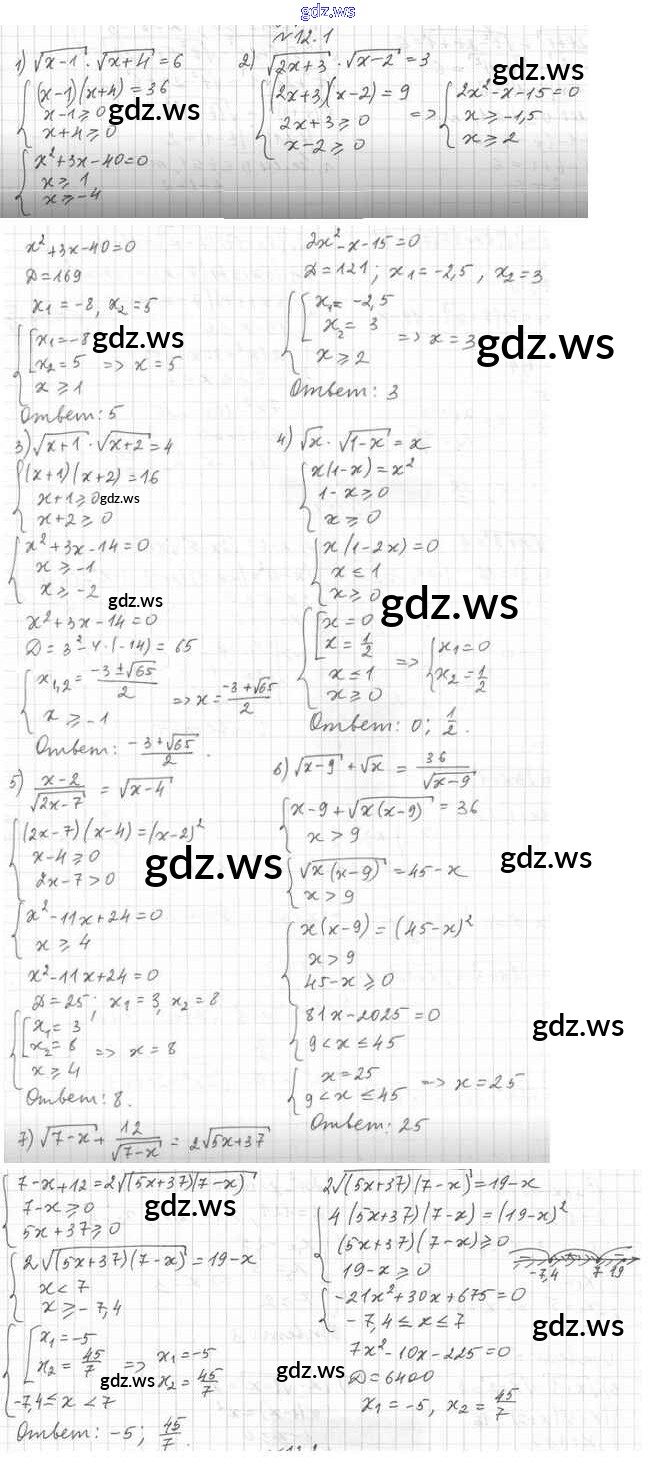 gdz.ws
№12.1
1) √(x-1) · √(x+4) = 6
{ (x-1)(x+4) = 36
x-1 ≥ 0
x+4 ≥ 0
{ x²+3x-40=0
x ≥ 1
x ≥ -4
2) √(2x+3) · √(x-2) = 3
{ (2x+3)(x-2) = 9
2x+3 ≥ 0
x-2 ≥ 0
=> { 2x²-x-15=0
x ≥ -1,5
x ≥ 2
gdz.ws
gdz.ws
x²+3x-40=0
D=169
x₁ = -8, x₂ = 5
{ [ x₁ = -8
x₂ = 5 => x = 5
x ≥ 1
Ответ: 5
gdz.ws
2x²-x-15=0
D=121; x₁=-2,5, x₂=3
{ [ x₁= -2,5
x₂ = 3 => x = 3
x ≥ 2
Ответ: 3
gdz.ws
3) √(x+1) · √(x+2) = 4
{ (x+1)(x+2) = 16
x+1 ≥ 0
x+2 ≥ 0
gdz.ws
{ x²+3x-14=0
x ≥ -1
x ≥ -2
gdz.ws
x²+3x-14=0
D = 3²-4·(-14) = 65
{ x₁,₂ = (-3±√65)/2
x ≥ -1 => x = (-3+√65)/2
Ответ: (-3+√65)/2.
4) √x · √(1-x) = x
{ x(1-x) = x²
1-x ≥ 0
x ≥ 0
{ x(1-2x) = 0
x ≤ 1
x ≥ 0
gdz.ws
{ [ x = 0
x = 1/2
x ≤ 1
x ≥ 0
=> { x₁ = 0
x₂ = 1/2
Ответ: 0; 1/2.
5) (x-2)/√(2x-7) = √(x-4)
{ (2x-7)(x-4) = (x-2)²
x-4 ≥ 0
2x-7 > 0
gdz.ws
{ x²-11x+24=0
x ≥ 4
x²-11x+24=0
D=25; x₁ = 3, x₂ = 8
{ [ x₁ = 3
x₂ = 8 => x = 8
x ≥ 4
Ответ: 8.
6) √(x-9) + √x = 36/√(x-9)
{ x-9+√(x(x-9)) = 36
x > 9
{ √(x(x-9)) = 45-x
x > 9
gdz.ws
{ x(x-9) = (45-x)²
x > 9
45-x ≥ 0
{ 81x-2025=0
9 < x ≤ 45
gdz.ws
{ x=25
9 < x ≤ 45 => x = 25
Ответ: 25
7) √(7-x) + 12/√(7-x) = 2√(5x+37)
{ 7-x+12=2√((5x+37)(7-x))
7-x ≥ 0
5x+37 ≥ 0
gdz.ws
{ 2√((5x+37)(7-x)) = 19-x
x < 7
x ≥ -7,4
{ [ x₁ = -5
x₂ = 45/7
-7,4 ≤ x < 7
=> x₁ = -5
x₂ = 45/7
gdz.ws
Ответ: -5; 45/7.
2√((5x+37)(7-x)) = 19-x
{ 4(5x+37)(7-x) = (19-x)²
(5x+37)(7-x) ≥ 0
19-x ≥ 0
-7,4 7 19
{ -21x²+30x+675=0
-7,4 ≤ x ≤ 7
gdz.ws
7x²-10x-225=0
gdz.ws
D=6400
x₁ = -5, x₂ = 45/7